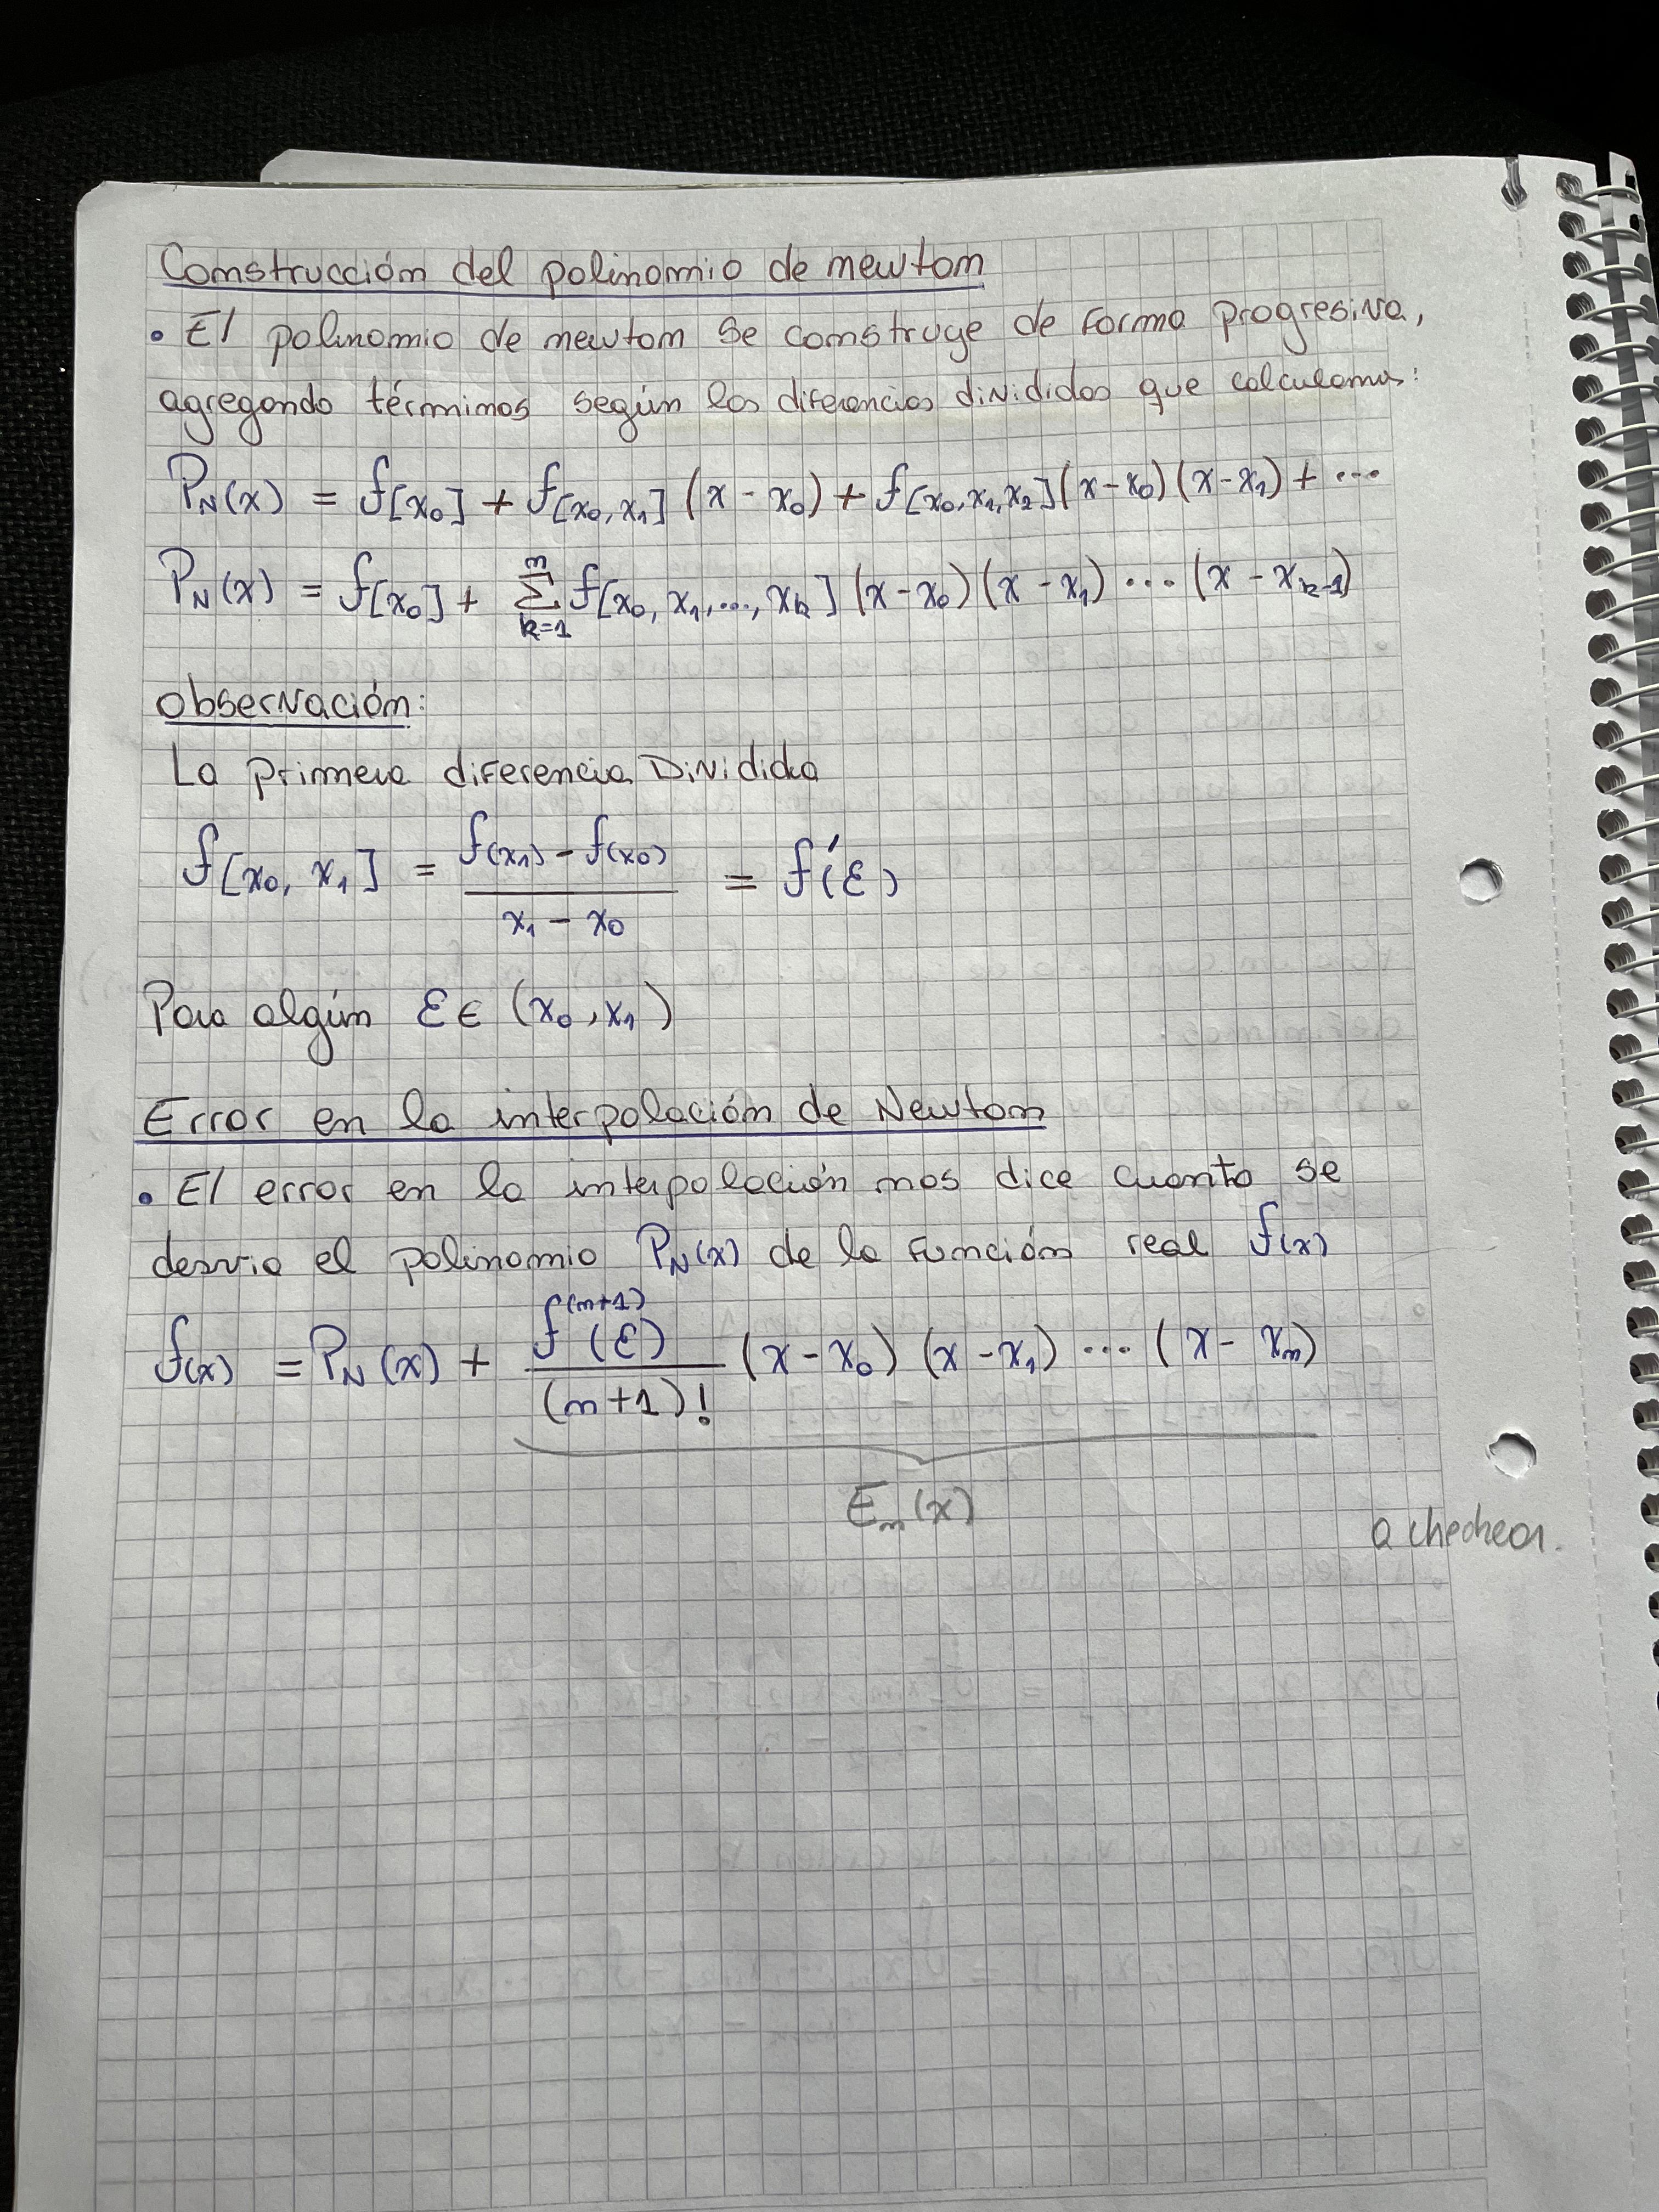 Construcción del polinomio de newton
• El polinomio de newton se construye de forma progresiva,
agregando términos según las diferencias divididas que calculemos:
P_N(x) = f[x_0] + f[x_0, x_1] (x - x_0) + f[x_0, x_1, x_2] (x - x_0) (x - x_1) + ...
P_N(x) = f[x_0] + ∑_{k=1}^{n} f[x_0, x_1, ..., x_k] (x - x_0) (x - x_1) ... (x - x_{k-1})
observación:
La primera diferencia Dividida
f[x_0, x_1] = \frac{f(x_1) - f(x_0)}{x_1 - x_0} = f'(ε)
Para algún ε ∈ (x_0, x_1)
Error en la interpolación de Newton
• El error en la interpolación nos dice cuanto se
desvia el polinomio P_N(x) de la función real f(x)
f(x) = P_N(x) + \frac{f^{(n+1)}(ε)}{(n+1)!} (x - x_0) (x - x_1) ... (x - x_n)
E_n(x)
a chechear.